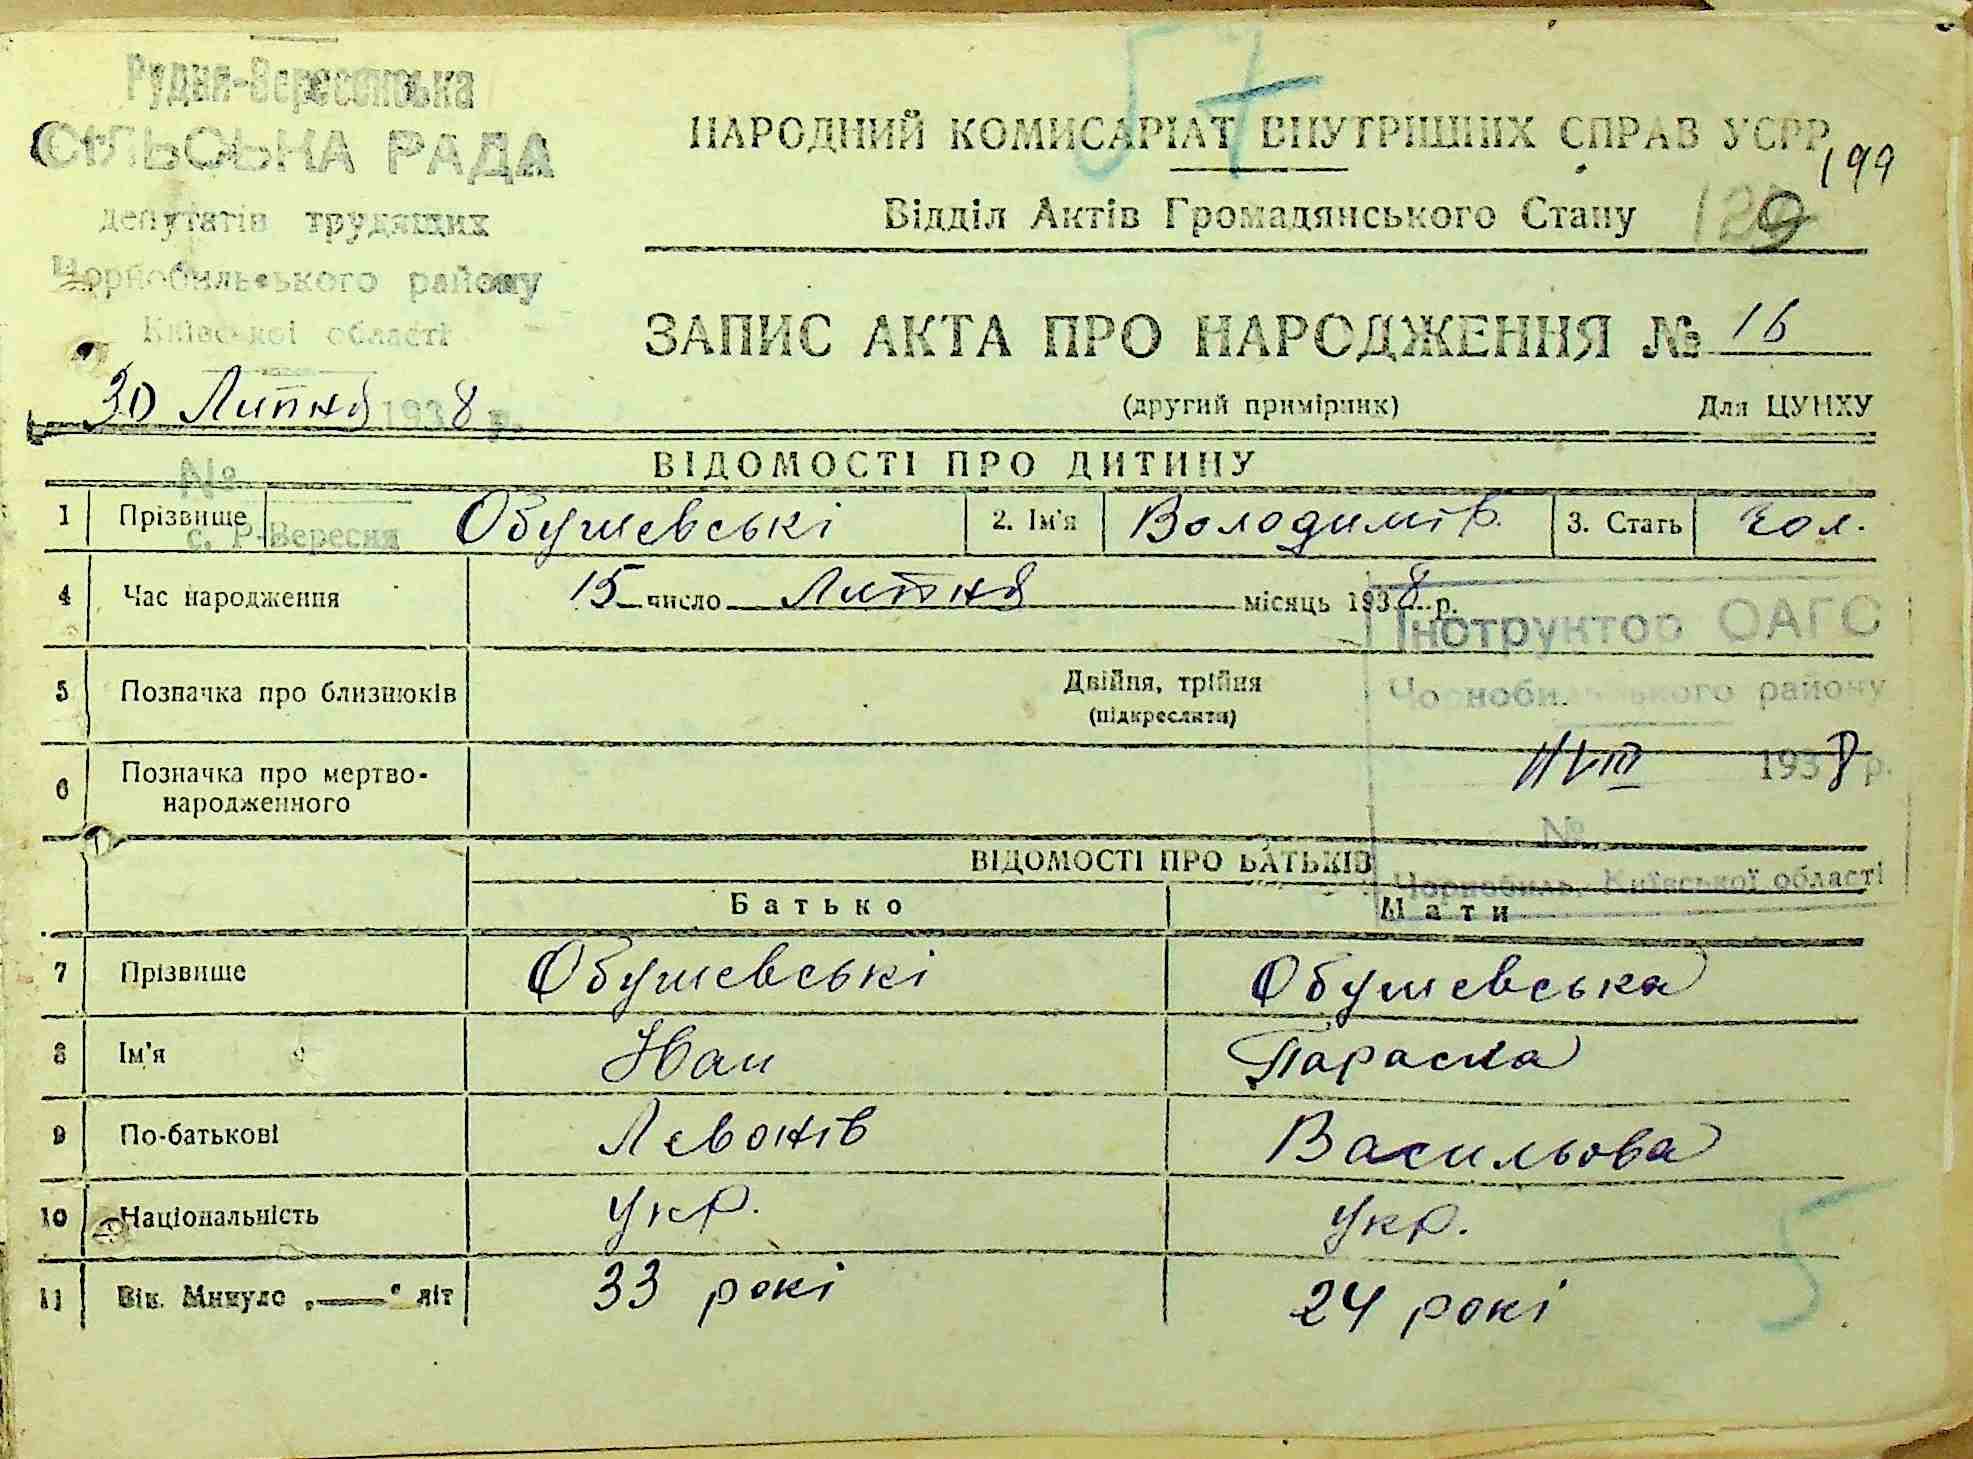 Рудня-Вересенська
СІЛЬСЬНА РАДА
депутатів трудящих
Чорнобильського району
Київської області
30 Липня 1938 р.
№
с. Р-Вересня
57
НАРОДНИЙ КОМИСАРІАТ ВНУТРІШНІХ СПРАВ УСРР
199
Відділ Актів Громадянського Стану
ЗАПИС АКТА ПРО НАРОДЖЕННЯ № 16
(другий примірник) Для ЦУНХУ
ВІДОМОСТІ ПРО ДИТИНУ
1 Прізвище Обушевські 2. Ім'я Володимір. 3. Стать Чол.
4 Час народження 15 число Липня місяць 1938 р.
Інструктор ОАГС
Чорнобильського району
5 Позначка про близнюків Двійня, трійня
(підкреслити)
6 Позначка про мертво-
народженного
1938 р.
№
Чорнобиль, Київської області
ВІДОМОСТІ ПРО БАТЬКІВ
Батько Мати
7 Прізвище Обушевські Обушевська
8 Ім'я Иван Параска
9 По-батькові Левонів Васильова
10 Національність Укр. Укр.
11 Вік. Минуло „—“ літ 33 рокі 24 рокі
5